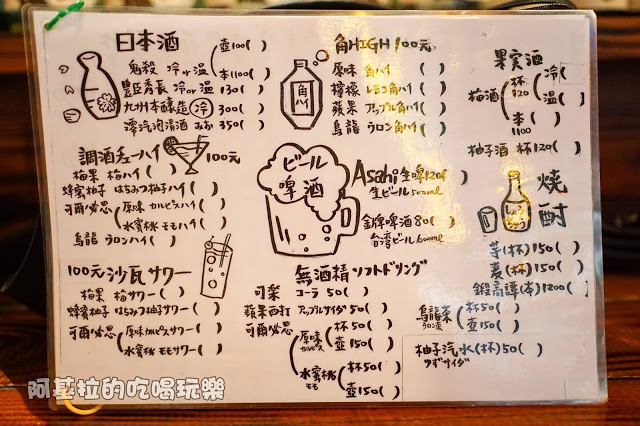 日本酒
鬼殺 冷or温 壺100( )
本1100( )
豐臣秀長 冷or温 130( )
九州本釀造 冷 300( )
澪汽泡清酒 みお 350( )
角HIGH 100元
角ハイ
原味 角ハイ ( )
檸檬 レモン角ハイ ( )
蘋果 アップル角ハイ ( )
烏龍 ウロン角ハイ ( )
果実酒
梅酒 杯120 冷( )
温( )
本1100 ( )
柚子酒 杯120( )
調酒チューハイ 100元
梅果 梅ハイ ( )
蜂蜜柚子 はちみつ柚子ハイ ( )
可爾必思 原味 カルピスハイ ( )
水蜜桃 モモハイ ( )
烏龍 ウロンハイ ( )
ビール
啤酒
Asahi 生啤120( )
生ビール 500ml
金牌啤酒 80( )
台湾ビール 600ml
燒酎
芋(杯)150( )
麦(杯)150( )
鍛高譚(本)1200( )
100元沙瓦サワー
梅果 梅サワー ( )
蜂蜜柚子 はちみつ柚子サワー ( )
可爾必思 原味カルピスサワー ( )
水蜜桃 モモサワー ( )
無酒精ソフトドリング
可楽 コーラ 50( )
蘋果西打 アップルサイダ 50( )
可爾必思 原味 カルピス 杯50( )
壺150( )
水蜜桃 モモ 杯50( )
壺150( )
烏龍茶 ウロン茶 杯50( )
壺150( )
柚子汽水(杯)50( )
ゆずサイダ
阿基拉的吃喝玩樂